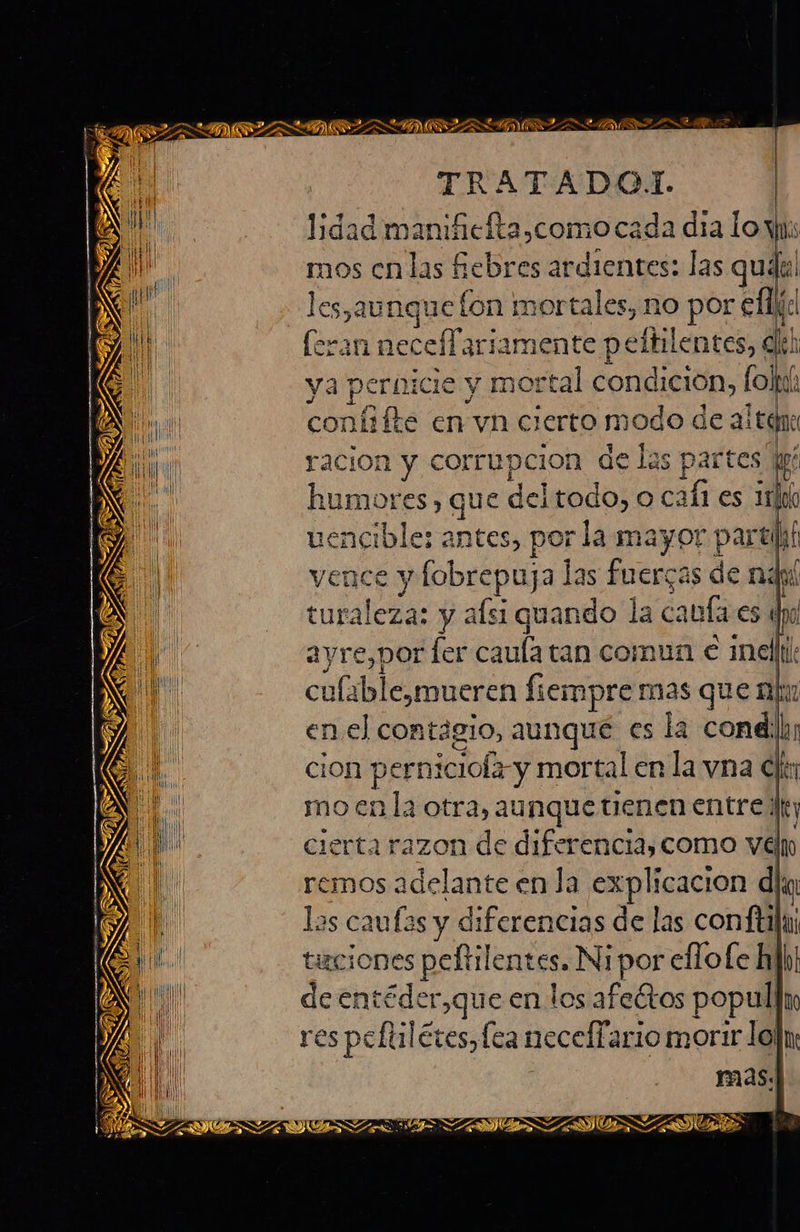 TRATADO.I.
lidad manifiesta,como cada dia lo
mos en las fiebres ardientes: las
les,aunque son mortales, no por
seran necessariamente pestilentes,
ya pernicie y mortal condicion,
consiste en vn cierto modo de
racion y corrupcion de las partes
humores, que del todo, o casi es
uencible: antes, por la mayor
vence y sobrepuja las fuerças de
turaleza: y assi quando la causa es
ayre,por ser causa tan comun e
cusable,mueren siempre mas que
en el contagio, aunque es la
cion perniciosa y mortal en la vna
mo en la otra, aunque tienen entre
cierta razon de diferencia, como
remos adelante en la explicacion
las causas y diferencias de las
tuciones pestilentes. Ni por esso se
de entēder,que en los afectos
res pestilētes,sea necessario morir
mas.